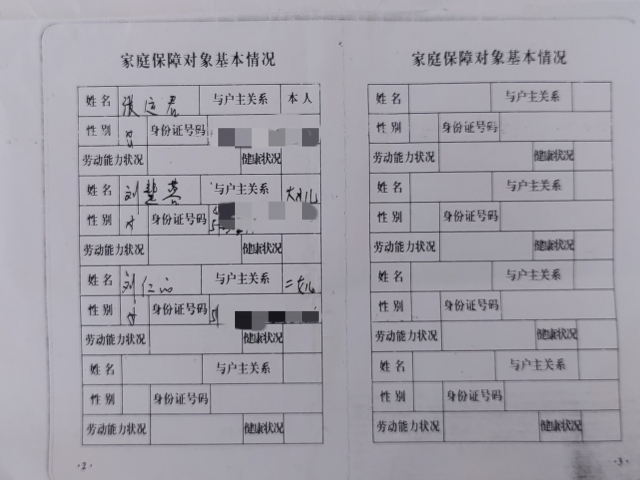 家庭保障对象基本情况
姓名 张 君 与户主关系 本人
性别 身份证号码
劳动能力状况 健康状况
姓名 刘慧 与户主关系 大儿
性别 身份证号码
劳动能力状况 健康状况
姓名 刘仁 与户主关系 二女儿
性别 身份证号码
劳动能力状况 健康状况
姓名 与户主关系
性别 身份证号码
劳动能力状况 健康状况
·2·
家庭保障对象基本情况
姓名 与户主关系
性别 身份证号码
劳动能力状况 健康状况
姓名 与户主关系
性别 身份证号码
劳动能力状况 健康状况
姓名 与户主关系
性别 身份证号码
劳动能力状况 健康状况
姓名 与户主关系
性别 身份证号码
劳动能力状况 健康状况
·3·